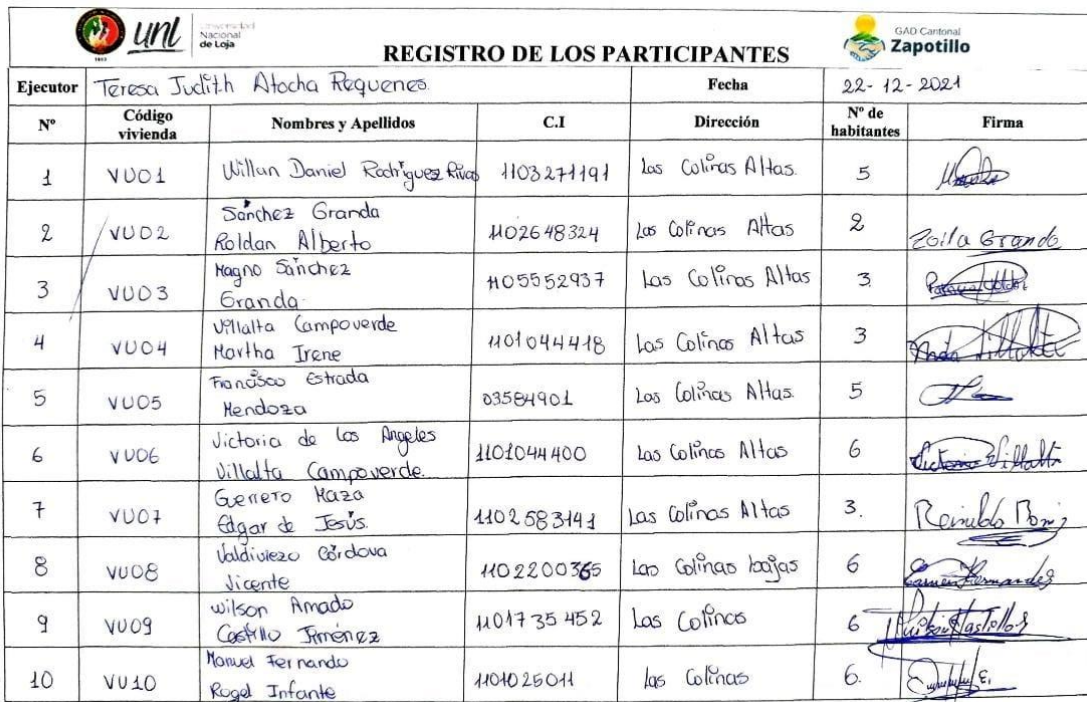 unl Universidad Nacional de Loja
GAD Cantonal Zapotillo
REGISTRO DE LOS PARTICIPANTES
Ejecutor Teresa Judith Atocha Requenes Fecha 22-12-2021
Nº Código vivienda Nombres y Apellidos C.I Dirección Nº de habitantes Firma
1 VU01 Willan Daniel Rodríguez Rivas 1103271191 Las Colinas Altas. 5
2 VU02 Sánchez Granda Roldan Alberto 1102648324 Las Colinas Altas 2 Zoila Granda
3 VU03 Magno Sánchez Granda 1105552937 Las Colinas Altas 3.
4 VU04 Villalta Campoverde Martha Irene 1101044418 Las Colinas Altas 3 Villalta
5 VU05 Francisco Estrada Mendoza 03584901 Las Colinas Altas. 5
6 VU06 Victoria de los Angeles Villalta Campoverde. 1101044400 Las Colinas Altas 6 Victoria Villalta
7 VU07 Guerrero Maza Edgar de Jesús. 1102583141 Las Colinas Altas 3.
8 VU08 Valdiviezo Córdova Vicente 1102200365 Las Colinas bajas 6 Carmen Hernandez
9 VU09 Wilson Amado Castillo Jiménez 1101735452 Las Colinas 6
10 VU10 Manuel Fernando Rogel Infante 1101025011 Las Colinas 6.